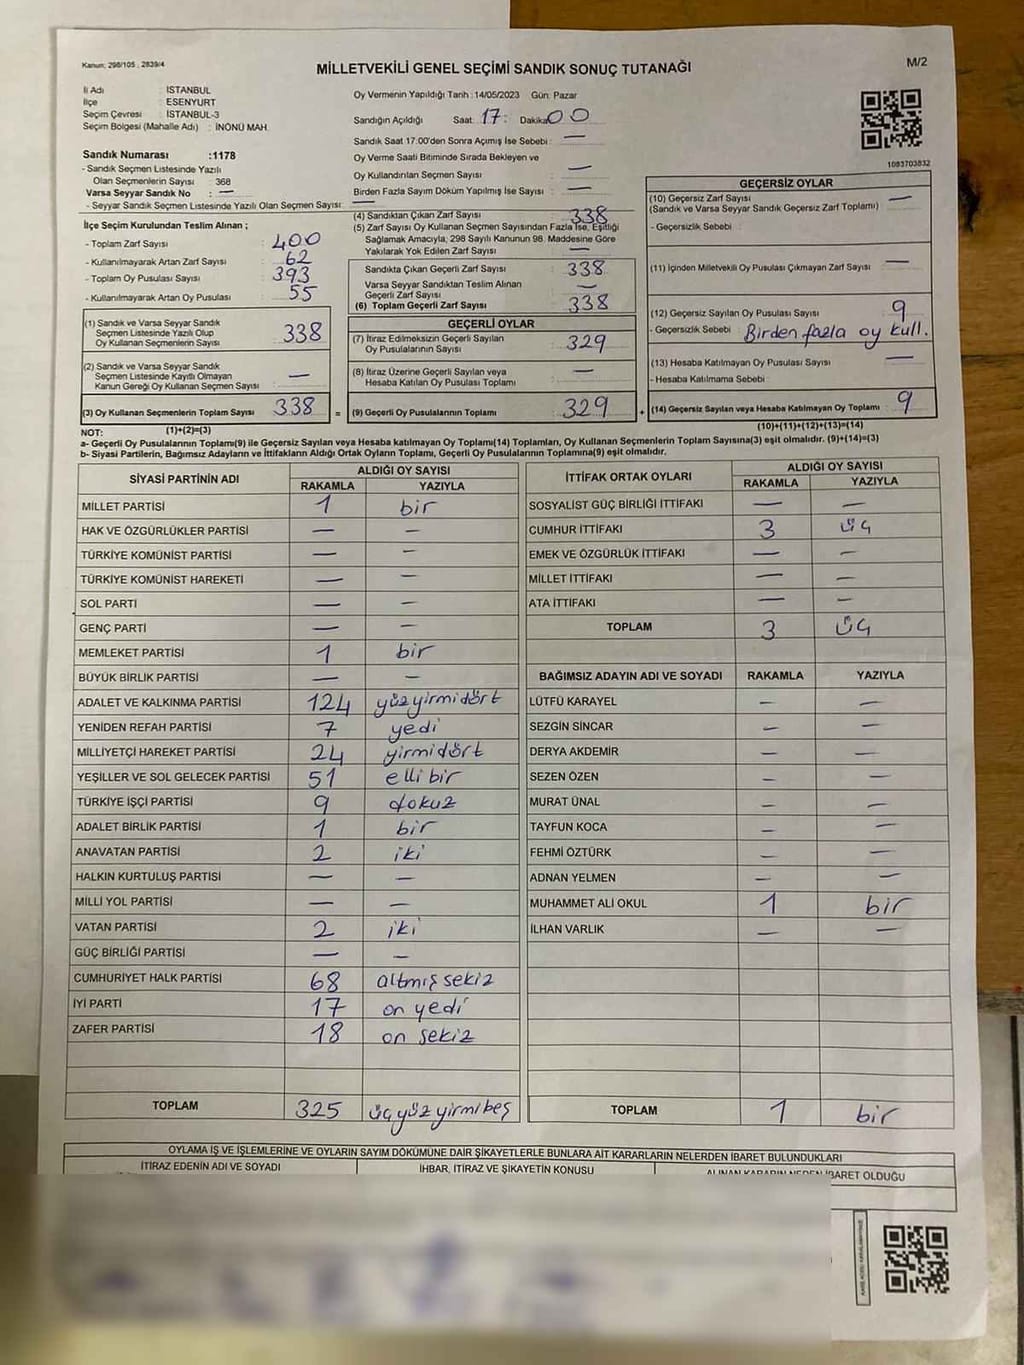 Kanun: 298/105 , 2839/4
M/2
MİLLETVEKİLİ GENEL SEÇİMİ SANDIK SONUÇ TUTANAĞI
İl Adı : İSTANBUL
İlçe : ESENYURT
Seçim Çevresi : İSTANBUL-3
Seçim Bölgesi (Mahalle Adı) : İNÖNÜ MAH.
Sandık Numarası :1178
- Sandık Seçmen Listesinde Yazılı
Olan Seçmenlerin Sayısı : 368
Varsa Seyyar Sandık No : —
- Seyyar Sandık Seçmen Listesinde Yazılı Olan Seçmen Sayısı: —
Oy Vermenin Yapıldığı Tarih :14/05/2023 Gün: Pazar
Sandığın Açıldığı Saat: 17: Dakika: 00
Sandık Saat 17:00'den Sonra Açımış İse Sebebi : —
Oy Verme Saati Bitiminde Sırada Bekleyen ve
Oy Kullandırılan Seçmen Sayısı : —
Birden Fazla Sayım Döküm Yapılmış İse Sayısı : —
1083703832
İlçe Seçim Kurulundan Teslim Alınan ;
- Toplam Zarf Sayısı : 400
- Kullanılmayarak Artan Zarf Sayısı : 62
- Toplam Oy Pusulası Sayısı : 393
- Kullanılmayarak Artan Oy Pusulası : 55
(1) Sandık ve Varsa Seyyar Sandık
Seçmen Listesinde Yazılı Olup
Oy Kullanan Seçmenlerin Sayısı : 338
(2) Sandık ve Varsa Seyyar Sandık
Seçmen Listesinde Kayıtlı Olmayan
Kanun Gereği Oy Kullanan Seçmen Sayısı : —
(3) Oy Kullanan Seçmenlerin Toplam Sayısı : 338
(1)+(2)=(3)
(4) Sandıktan Çıkan Zarf Sayısı : 338
(5) Zarf Sayısı Oy Kullanan Seçmen Sayısından Fazla İse, Eşitliği
Sağlamak Amacıyla, 298 Sayılı Kanunun 98. Maddesine Göre
Yakılarak Yok Edilen Zarf Sayısı : —
Sandıkta Çıkan Geçerli Zarf Sayısı : 338
Varsa Seyyar Sandıktan Teslim Alınan
Geçerli Zarf Sayısı : —
(6) Toplam Geçerli Zarf Sayısı : 338
GEÇERLİ OYLAR
(7) İtiraz Edilmeksizin Geçerli Sayılan
Oy Pusulalarının Sayısı : 329
(8) İtiraz Üzerine Geçerli Sayılan veya
Hesaba Katılan Oy Pusulası Toplamı : —
= (9) Geçerli Oy Pusulalarının Toplamı : 329
GEÇERSİZ OYLAR
(10) Geçersiz Zarf Sayısı : —
(Sandık ve Varsa Seyyar Sandık Geçersiz Zarf Toplamı)
- Geçersizlik Sebebi :
(11) İçinden Milletvekili Oy Pusulası Çıkmayan Zarf Sayısı : —
(12) Geçersiz Sayılan Oy Pusulası Sayısı : 9
- Geçersizlik Sebebi : Birden fazla oy kull.
(13) Hesaba Katılmayan Oy Pusulası Sayısı : —
- Hesaba Katılmama Sebebi
+ (14) Geçersiz Sayılan veya Hesaba Katılmayan Oy Toplamı : 9
(10)+(11)+(12)+(13)=(14)
NOT:
a- Geçerli Oy Pusulalarının Toplamı(9) ile Geçersiz Sayılan veya Hesaba katılmayan Oy Toplamı(14) Toplamları, Oy Kullanan Seçmenlerin Toplam Sayısına(3) eşit olmalıdır. (9)+(14)=(3)
b- Siyasi Partilerin, Bağımsız Adayların ve İttifakların Aldığı Ortak Oyların Toplamı, Geçerli Oy Pusulalarının Toplamına(9) eşit olmalıdır.
SİYASİ PARTİNİN ADI ALDIĞI OY SAYISI
RAKAMLA YAZIYLA
MİLLET PARTİSİ 1 bir
HAK VE ÖZGÜRLÜKLER PARTİSİ — —
TÜRKİYE KOMÜNİST PARTİSİ — —
TÜRKİYE KOMÜNİST HAREKETİ — —
SOL PARTİ — —
GENÇ PARTİ — —
MEMLEKET PARTİSİ 1 bir
BÜYÜK BİRLİK PARTİSİ — —
ADALET VE KALKINMA PARTİSİ 124 yüzyirmidört
YENİDEN REFAH PARTİSİ 7 yedi
MİLLİYETÇİ HAREKET PARTİSİ 24 yirmidört
YEŞİLLER VE SOL GELECEK PARTİSİ 51 elli bir
TÜRKİYE İŞÇİ PARTİSİ 9 dokuz
ADALET BİRLİK PARTİSİ 1 bir
ANAVATAN PARTİSİ 2 iki
HALKIN KURTULUŞ PARTİSİ — —
MİLLİ YOL PARTİSİ — —
VATAN PARTİSİ 2 iki
GÜÇ BİRLİĞİ PARTİSİ — —
CUMHURİYET HALK PARTİSİ 68 altmış sekiz
İYİ PARTİ 17 on yedi
ZAFER PARTİSİ 18 on sekiz
TOPLAM 325 üçyüz yirmibeş
İTTİFAK ORTAK OYLARI ALDIĞI OY SAYISI
RAKAMLA YAZIYLA
SOSYALİST GÜÇ BİRLİĞİ İTTİFAKI — —
CUMHUR İTTİFAKI 3 üç
EMEK VE ÖZGÜRLÜK İTTİFAKI — —
MİLLET İTTİFAKI — —
ATA İTTİFAKI — —
TOPLAM 3 üç
BAĞIMSIZ ADAYIN ADI VE SOYADI RAKAMLA YAZIYLA
LÜTFÜ KARAYEL — —
SEZGİN SİNCAR — —
DERYA AKDEMİR — —
SEZEN ÖZEN — —
MURAT ÜNAL — —
TAYFUN KOCA — —
FEHMİ ÖZTÜRK — —
ADNAN YELMEN — —
MUHAMMET ALİ OKUL 1 bir
İLHAN VARLIK — —
TOPLAM 1 bir
OYLAMA İŞ VE İŞLEMLERİNE VE OYLARIN SAYIM DÖKÜMÜNE DAİR ŞİKAYETLERLE BUNLARA AİT KARARLARIN NELERDEN İBARET BULUNDUKLARI
İTİRAZ EDENİN ADI VE SOYADI İHBAR, İTİRAZ VE ŞİKAYETİN KONUSU ALINAN KARARIN NEDEN İBARET OLDUĞU